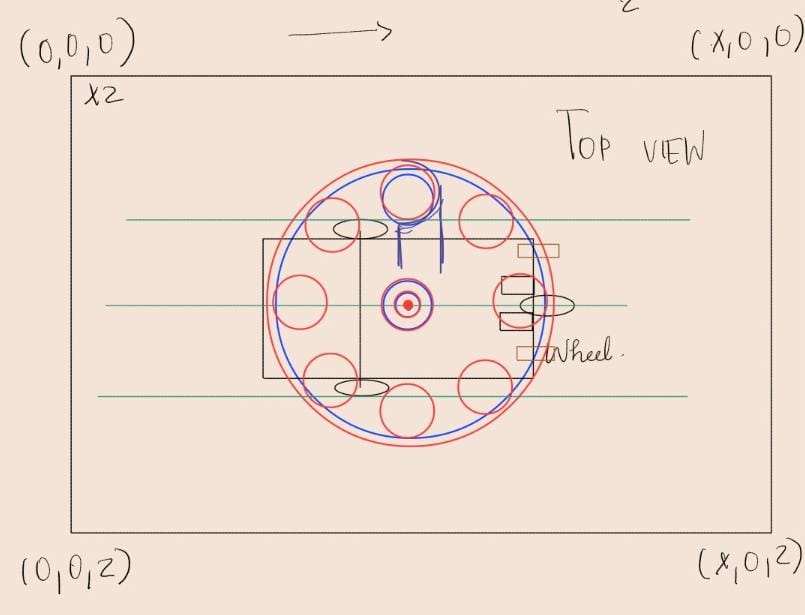 2
(0,0,0)
(x,0,0)
X2
TOP VIEW
Wheel.
(0,0,2)
(x,0,2)